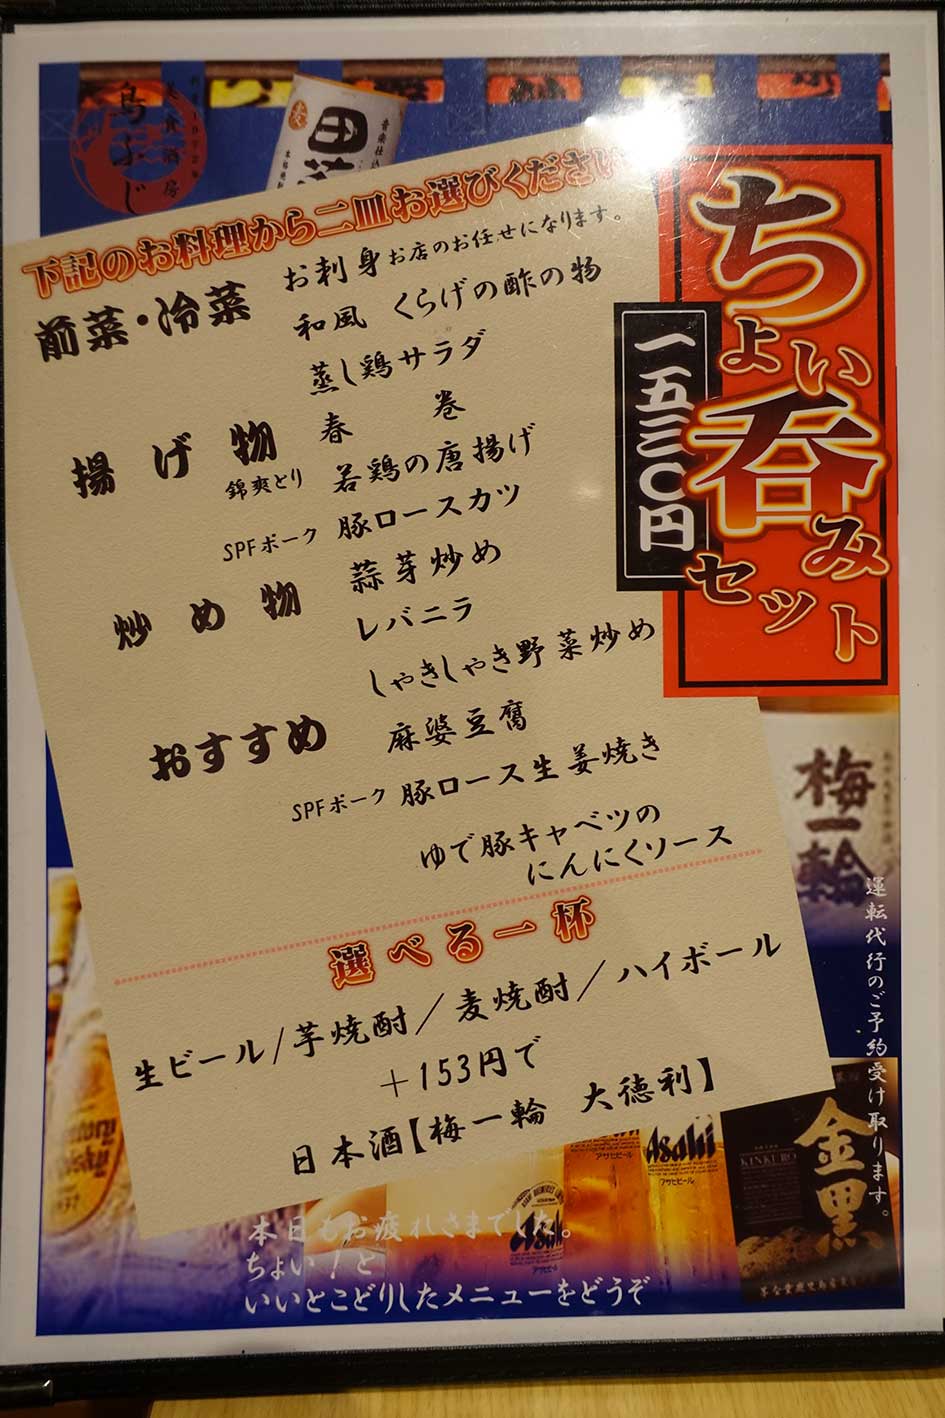 ちょい呑みセット
一五三〇円
下記のお料理から二皿お選びください
前菜・冷菜
お刺身 お店のお任せになります。
和風 くらげの酢の物
蒸し鶏サラダ
揚げ物
春巻
錦爽とり 若鶏の唐揚げ
SPFポーク 豚ロースカツ
炒め物
蒜芽炒め
レバニラ
しゃきしゃき野菜炒め
おすすめ
麻婆豆腐
SPFポーク 豚ロース生姜焼き
ゆで豚キャベツの
にんにくソース
選べる一杯
生ビール/芋焼酎/麦焼酎/ハイボール
+153円で
日本酒【梅一輪 大徳利】
運転代行のご予約受け取ります。
本日もお疲れさまでした。
ちょい!と
いいとこどりしたメニューをどうぞ
梅一輪
金黒
KINKURO
Asahi
アサヒビール
Asahi
アサヒビール
Asahi